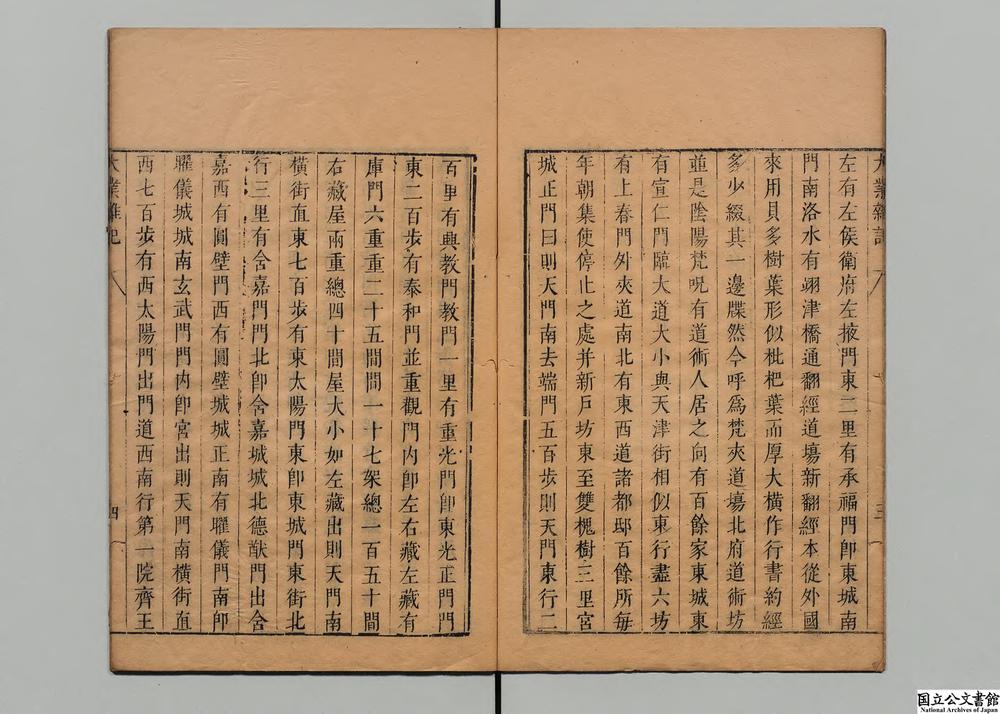 大業雜記
三
左有左侯衛府左掖門東二里有承福門即東城南
門南洛水有翊津橋通翻經道場新翻經本從外國
來用貝多樹葉形似枇杷葉而厚大橫作行書約經
多少綴其一邊牒然今呼為梵夾道場北府道術坊
並是陰陽梵呪有道術人居之向有百餘家東城東
有宣仁門臨大道大小與天津街相似東行盡六坊
有上春門外夾道南北有東西道諸都邸百餘所每
年朝集使停止之處并新戶坊東至雙槐樹三里宮
城正門曰則天門南去端門五百步則天門東行二
百里有興教門教門一里有重光門即東光正門門
東二百步有泰和門並重觀門內即左右藏左藏有
庫門六重重二十五間間一十七架總一百五十間
右藏屋兩重總四十間屋大小如左藏出則天門南
橫街直東七百步有東太陽門東即東城門東街北
行三里有含嘉門門北即含嘉城城北德猷門出含
嘉西有圓壁門西有圓壁城城正南有曜儀門南即
曜儀城城南玄武門門內即宮出則天門南橫街直
西七百步有西太陽門出門道西南行第一院齊王
大業雜記
四
国立公文書館
National Archives of Japan